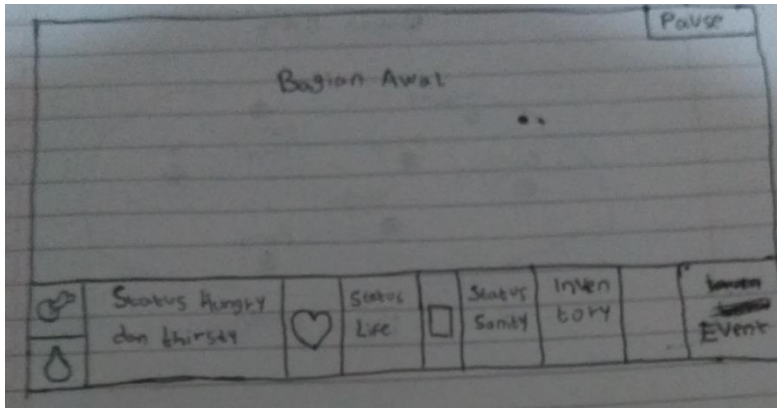 Pause
Bagian Awal
Status Hungry
dan thirsty
Status
Life
Status
Sanity
Inven
tory
Event